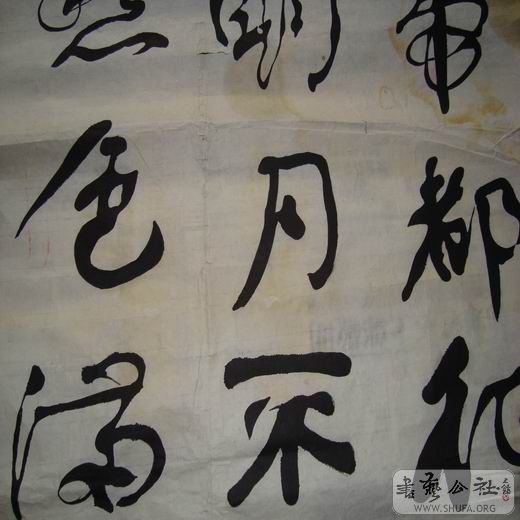 帝都
明月不
色满
書藝公社
WWW.SHUFA.ORG